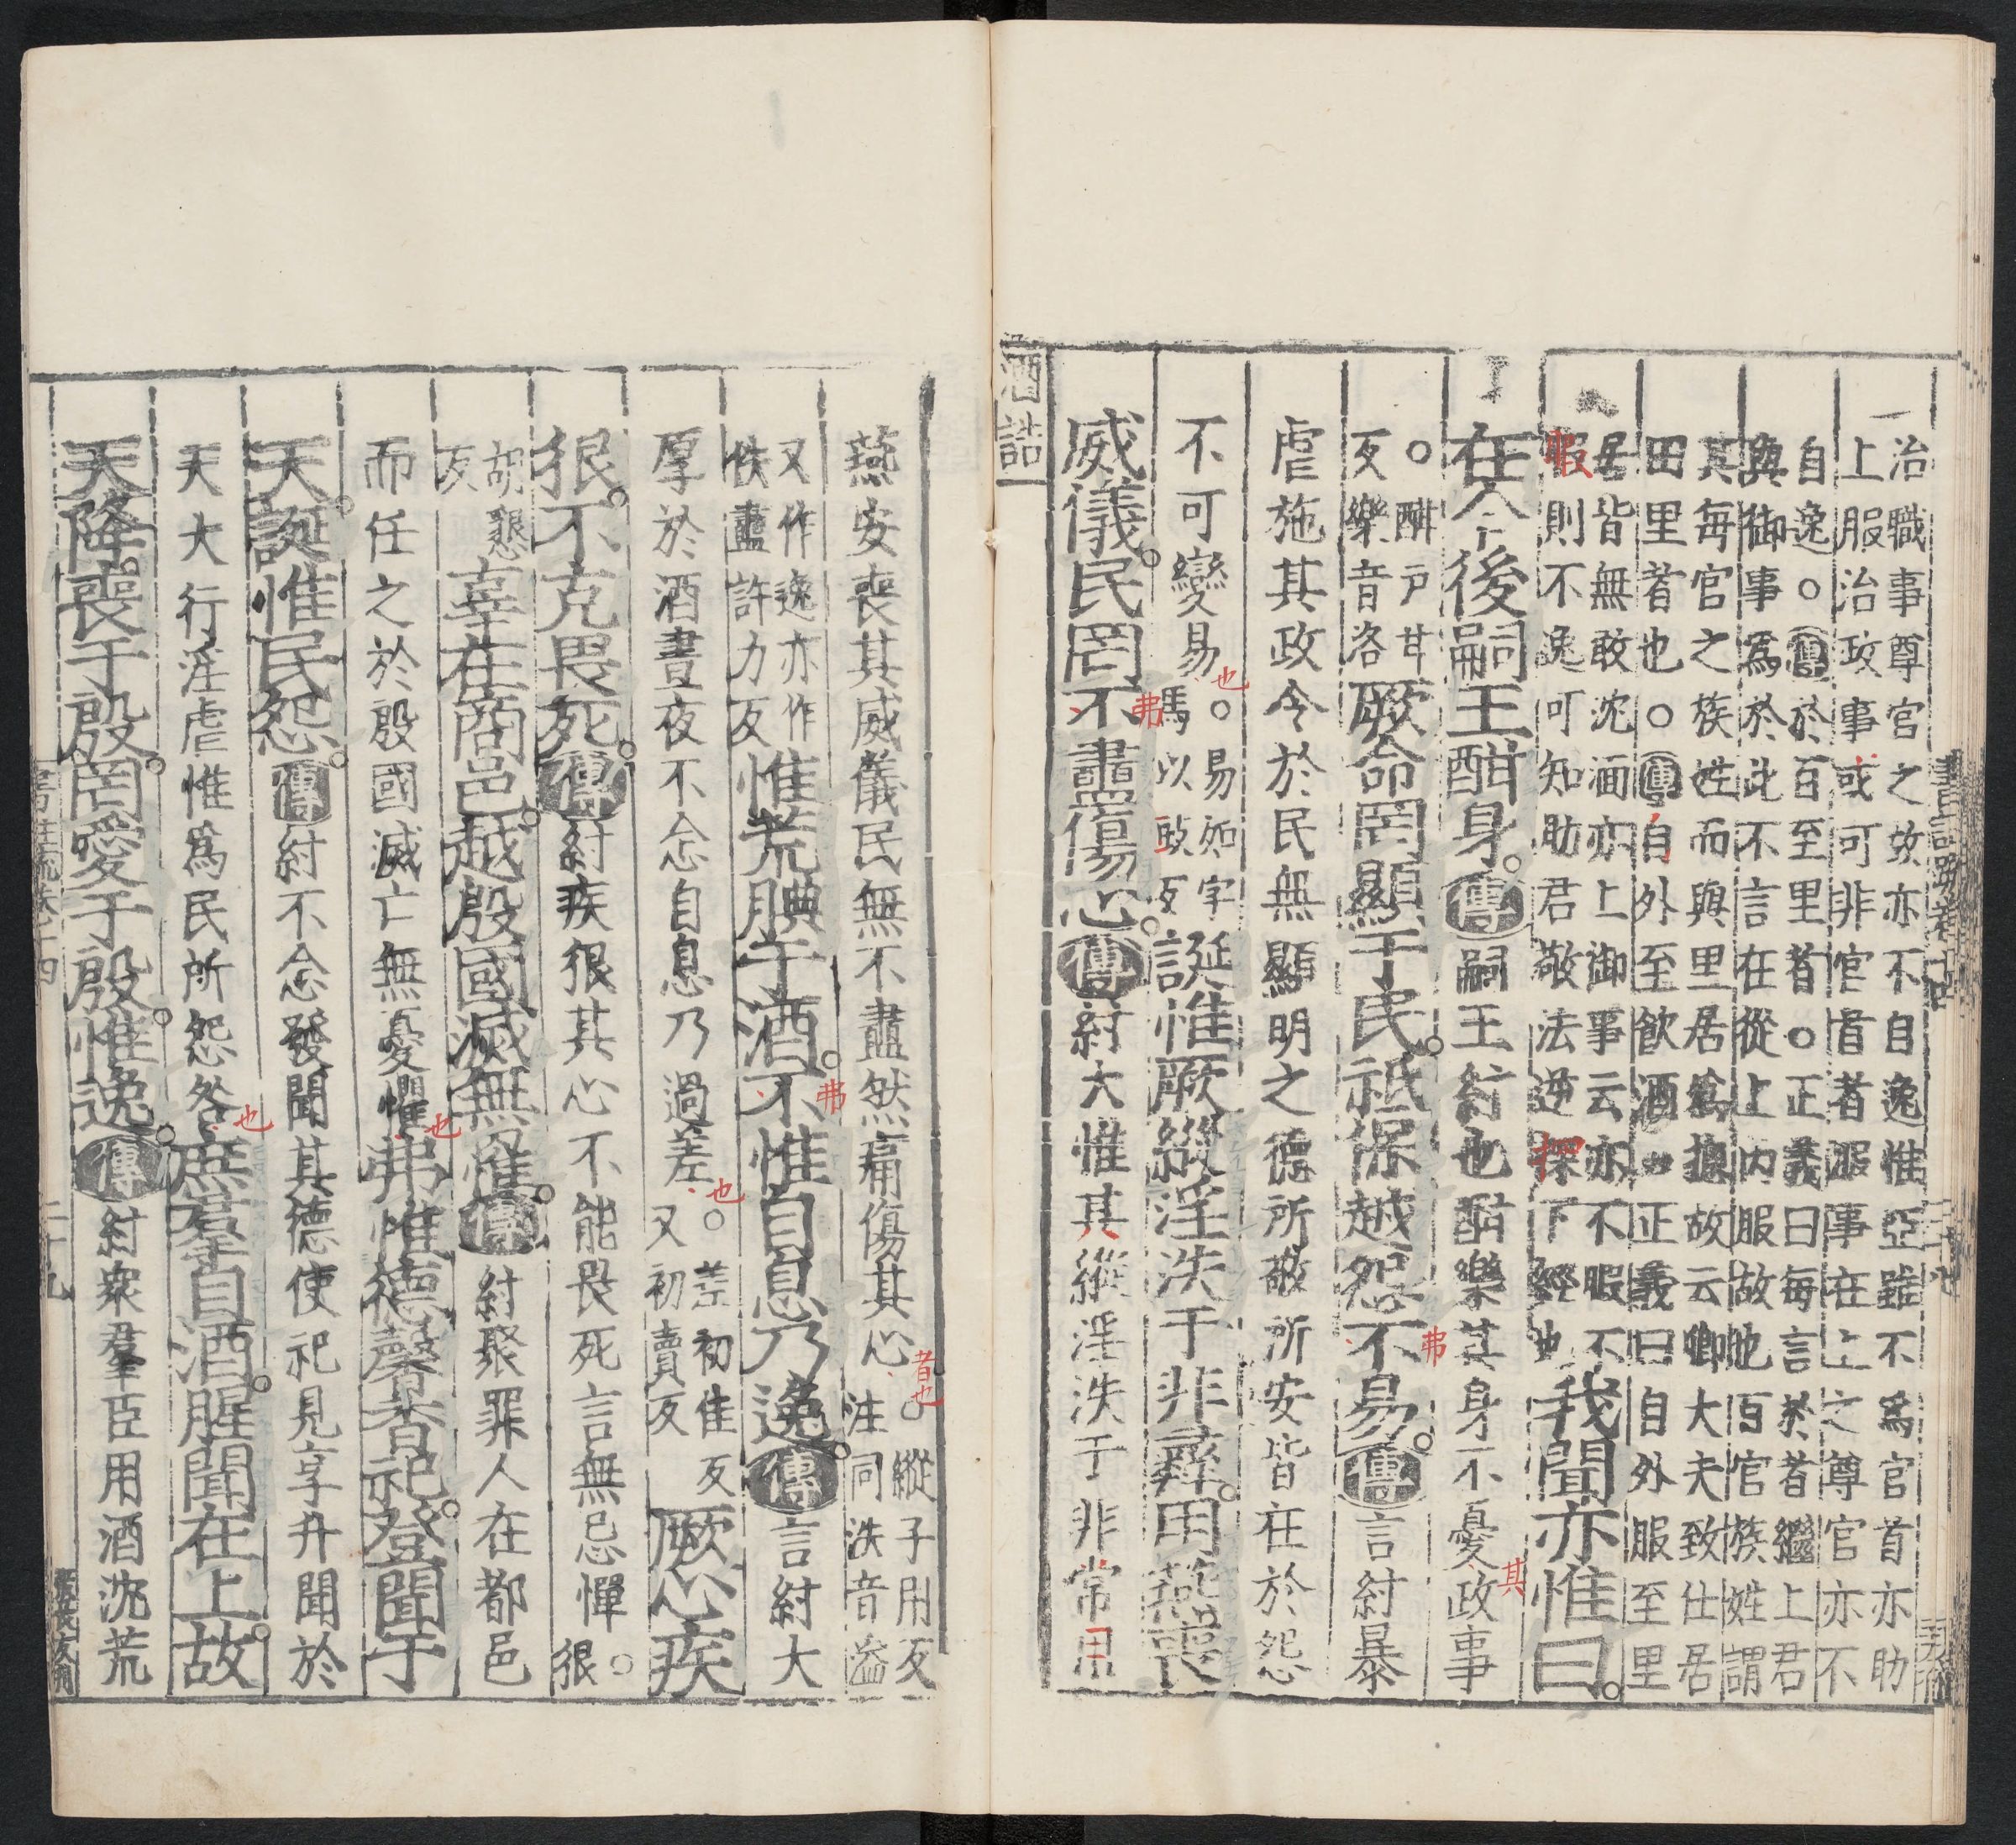 治職事尊官之故亦不自逸惟亞雖不爲官首亦助
上服治政事或可非官首者服事在上之尊官亦不
自逸○傳於百至里者○正義曰每言於者繼上君
與御事爲於此不言在從上内服故也百官族姓謂
其每官之族姓而與里居爲揔故云卿大夫致仕居
田里者也○傳自外至飲酒○正義曰自外服至里
居皆無敢沈湎亦上御事云亦不暇不
暇則不逸可知助君敬法逆探下經也我聞亦惟曰
在今後嗣王酣身傳嗣王紂也酣樂其身不憂政事
○酣戸甘
反樂音洛厥命罔顯于民祗保越怨不易傳言紂暴
虐施其政令於民無顯明之德所敬所安皆在於怨
不可變易○易如字
馬以豉反誕惟厥縱淫泆于非彝用燕喪
威儀民罔不盡傷心傳紂大惟其縱淫泆于非常用
酒誥
燕安喪其威儀民無不盡然痛傷其心○縱子用反
注同泆音溢
又作逸亦作
佚盡許力反惟荒腆于酒不惟自息乃逸傳言紂大
厚於酒晝夜不念自息乃過差○差初佳反
又初賣反厥心疾
很不克畏死傳紂疾很其心不能畏死言無忌憚○
很
胡懇
反辜在商邑越殷國滅無罹傳紂聚罪人在都邑
而任之於殷國滅亡無憂懼弗惟德馨香祀登聞于
天誕惟民怨傳紂不念發聞其德使祀見享升聞於
天大行淫虐惟爲民所怨咎庶羣自酒腥聞在上故
天降喪于殷罔愛于殷惟逸傳紂衆羣臣用酒沈荒
二十九